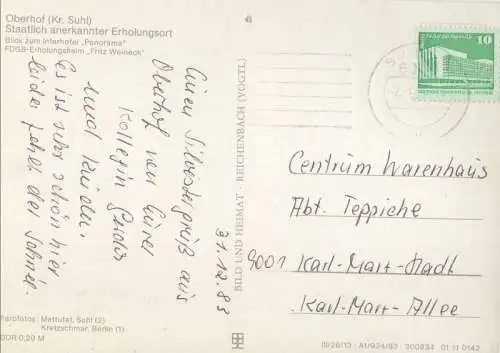 Oberhof (Kr. Suhl)
Staatlich anerkannter Erholungsort
Blick zum Interhotel „Panorama"
FDGB-Erholungsheim „Fritz Weineck"
31.12.83
Einen Silvestergruß aus
Oberhof von Eurer
Kollegin Gerda
und Kindern.
Es ist sehr schön hier
leider fehlt der Schnee.
Farbfotos: Mettutat, Suhl (2)
Kretzschmar, Berlin (1)
DDR 0,20 M
BILD UND HEIMAT · REICHENBACH (VOGTL)
10
Centrum Warenhaus
Abt. Teppiche
9001 Karl-Marx-Stadt
Karl-Marx-Allee
III/26/13 A1/934/83 300934 01 11 0142